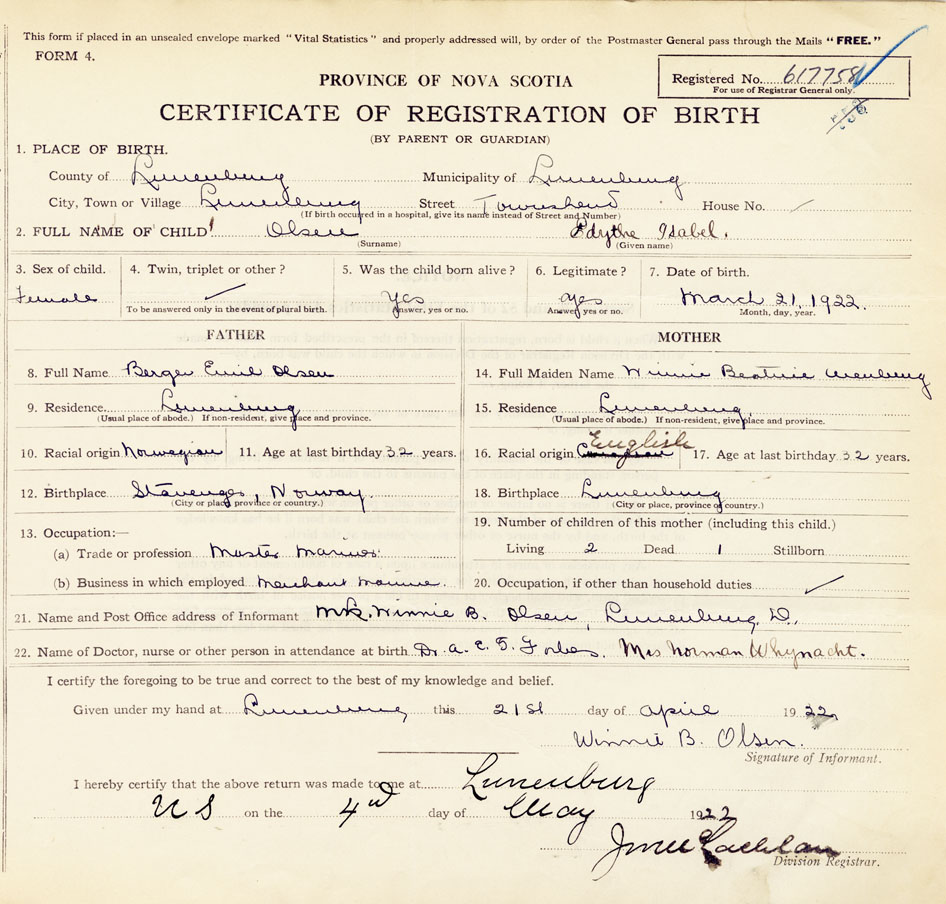 This form if placed in an unsealed envelope marked "Vital Statistics" and properly addressed will, by order of the Postmaster General pass through the Mails "FREE."
FORM 4.
PROVINCE OF NOVA SCOTIA
Registered No. 617758
For use of Registrar General only.
CERTIFICATE OF REGISTRATION OF BIRTH
(BY PARENT OR GUARDIAN)
1. PLACE OF BIRTH.
County of Lunenburg Municipality of Lunenburg
City, Town or Village Lunenburg Street Townshend House No.
(If birth occurred in a hospital, give its name instead of Street and Number)
2. FULL NAME OF CHILD Olsen Edythe Isabel.
(Surname) (Given name)
3. Sex of child. 4. Twin, triplet or other? 5. Was the child born alive? 6. Legitimate? 7. Date of birth.
Female yes yes March 21, 1922.
To be answered only in the event of plural birth. Answer, yes or no. Answer yes or no. Month, day, year.
FATHER MOTHER
8. Full Name Berger Emil Olsen 14. Full Maiden Name Winnie Beatrice
9. Residence Lunenburg 15. Residence Lunenburg
(Usual place of abode.) If non-resident, give place and province. (Usual place of abode.) If non-resident, give place and province.
10. Racial origin Norwegian 11. Age at last birthday 32 years. 16. Racial origin English 17. Age at last birthday 32 years.
12. Birthplace Stavenger, Norway. 18. Birthplace Lunenburg
(City or place, province or country.) (City or place, province or country.)
13. Occupation:— 19. Number of children of this mother (including this child.)
(a) Trade or profession Master Mariner Living 2 Dead 1 Stillborn
(b) Business in which employed Merchant Marine. 20. Occupation, if other than household duties
21. Name and Post Office address of Informant Mrs. Winnie B. Olsen, Lunenburg,
22. Name of Doctor, nurse or other person in attendance at birth Dr. A. E. G. Forbes. Mrs Norman Whynacht.
I certify the foregoing to be true and correct to the best of my knowledge and belief.
Given under my hand at Lunenburg this 21st day of April 1922
Winnie B. Olsen.
Signature of Informant.
I hereby certify that the above return was made to me at Lunenburg
NS on the 4 day of May 1922
Division Registrar.